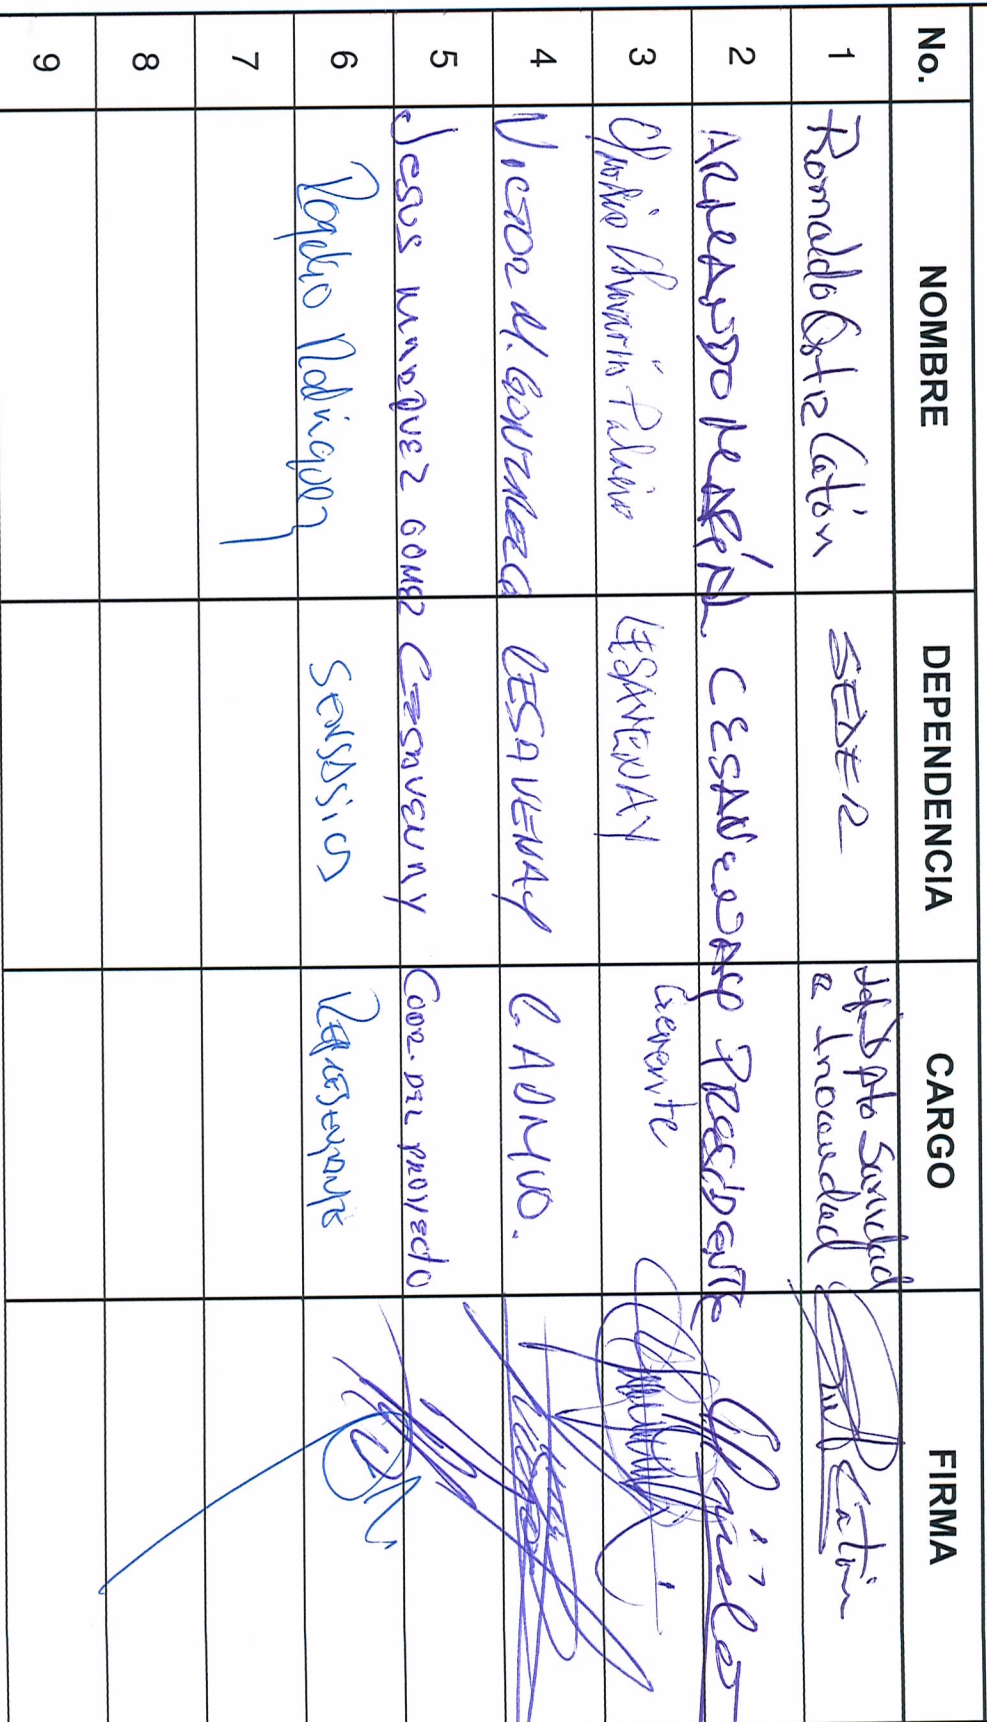 No. NOMBRE DEPENDENCIA CARGO FIRMA
1 Romaldo Ortiz Catón SEDER Jefe Dpto Sanidad
e Inocuidad Catón
2 ARMANDO CESAVENAY PRESIDENTE
3 CESAVENAY Gerente
4 VICTOR M. GONZALEZ G CESAVENAY C. ADMVO.
5 JESUS GOMEZ CESAVENAY COOR. DEL PROYECTO
6 Rogelio Rodriguez REPRESENTANTE
7
8
9